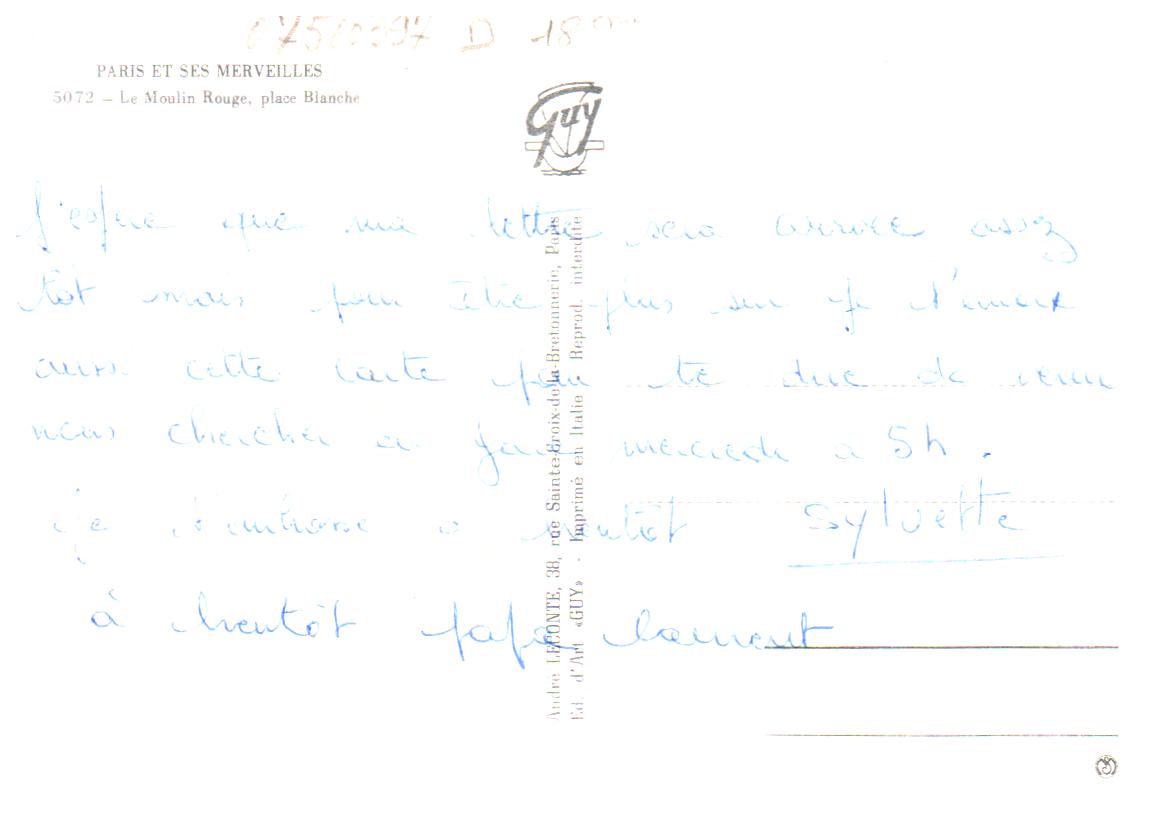 07500397 D 18
PARIS ET SES MERVEILLES
5072 – Le Moulin Rouge, place Blanche
Guy
J'espère que ma lettre sera arrivée assez
tôt mais pour être plus sur je t'envoie
aussi cette carte pour te dire de venir
nous chercher en gare mercredi a 5h.
je t'embrasse a bientôt Sylvette
à bientôt papa laurent
André LECONTE, 38, rue Sainte-Croix-de-la-Bretonnerie, Paris
Ed. d'Art «GUY» - Imprimé en Italie Reprod. interdite